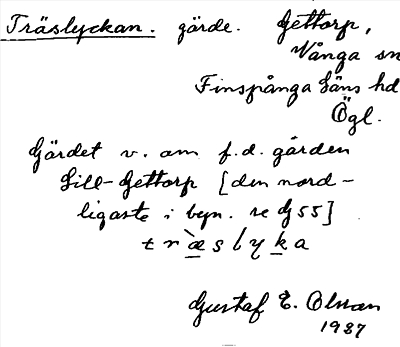 Träslyckan. gärde. Gettorp,
Vånga sn
Finspånga läns hd
Ögl.
Gärdet v. om f.d. gården
Lill-Gettorp [den nord-
ligaste i byn. se G 55]
træ̀slyka
Gustaf E. Olsson
1937